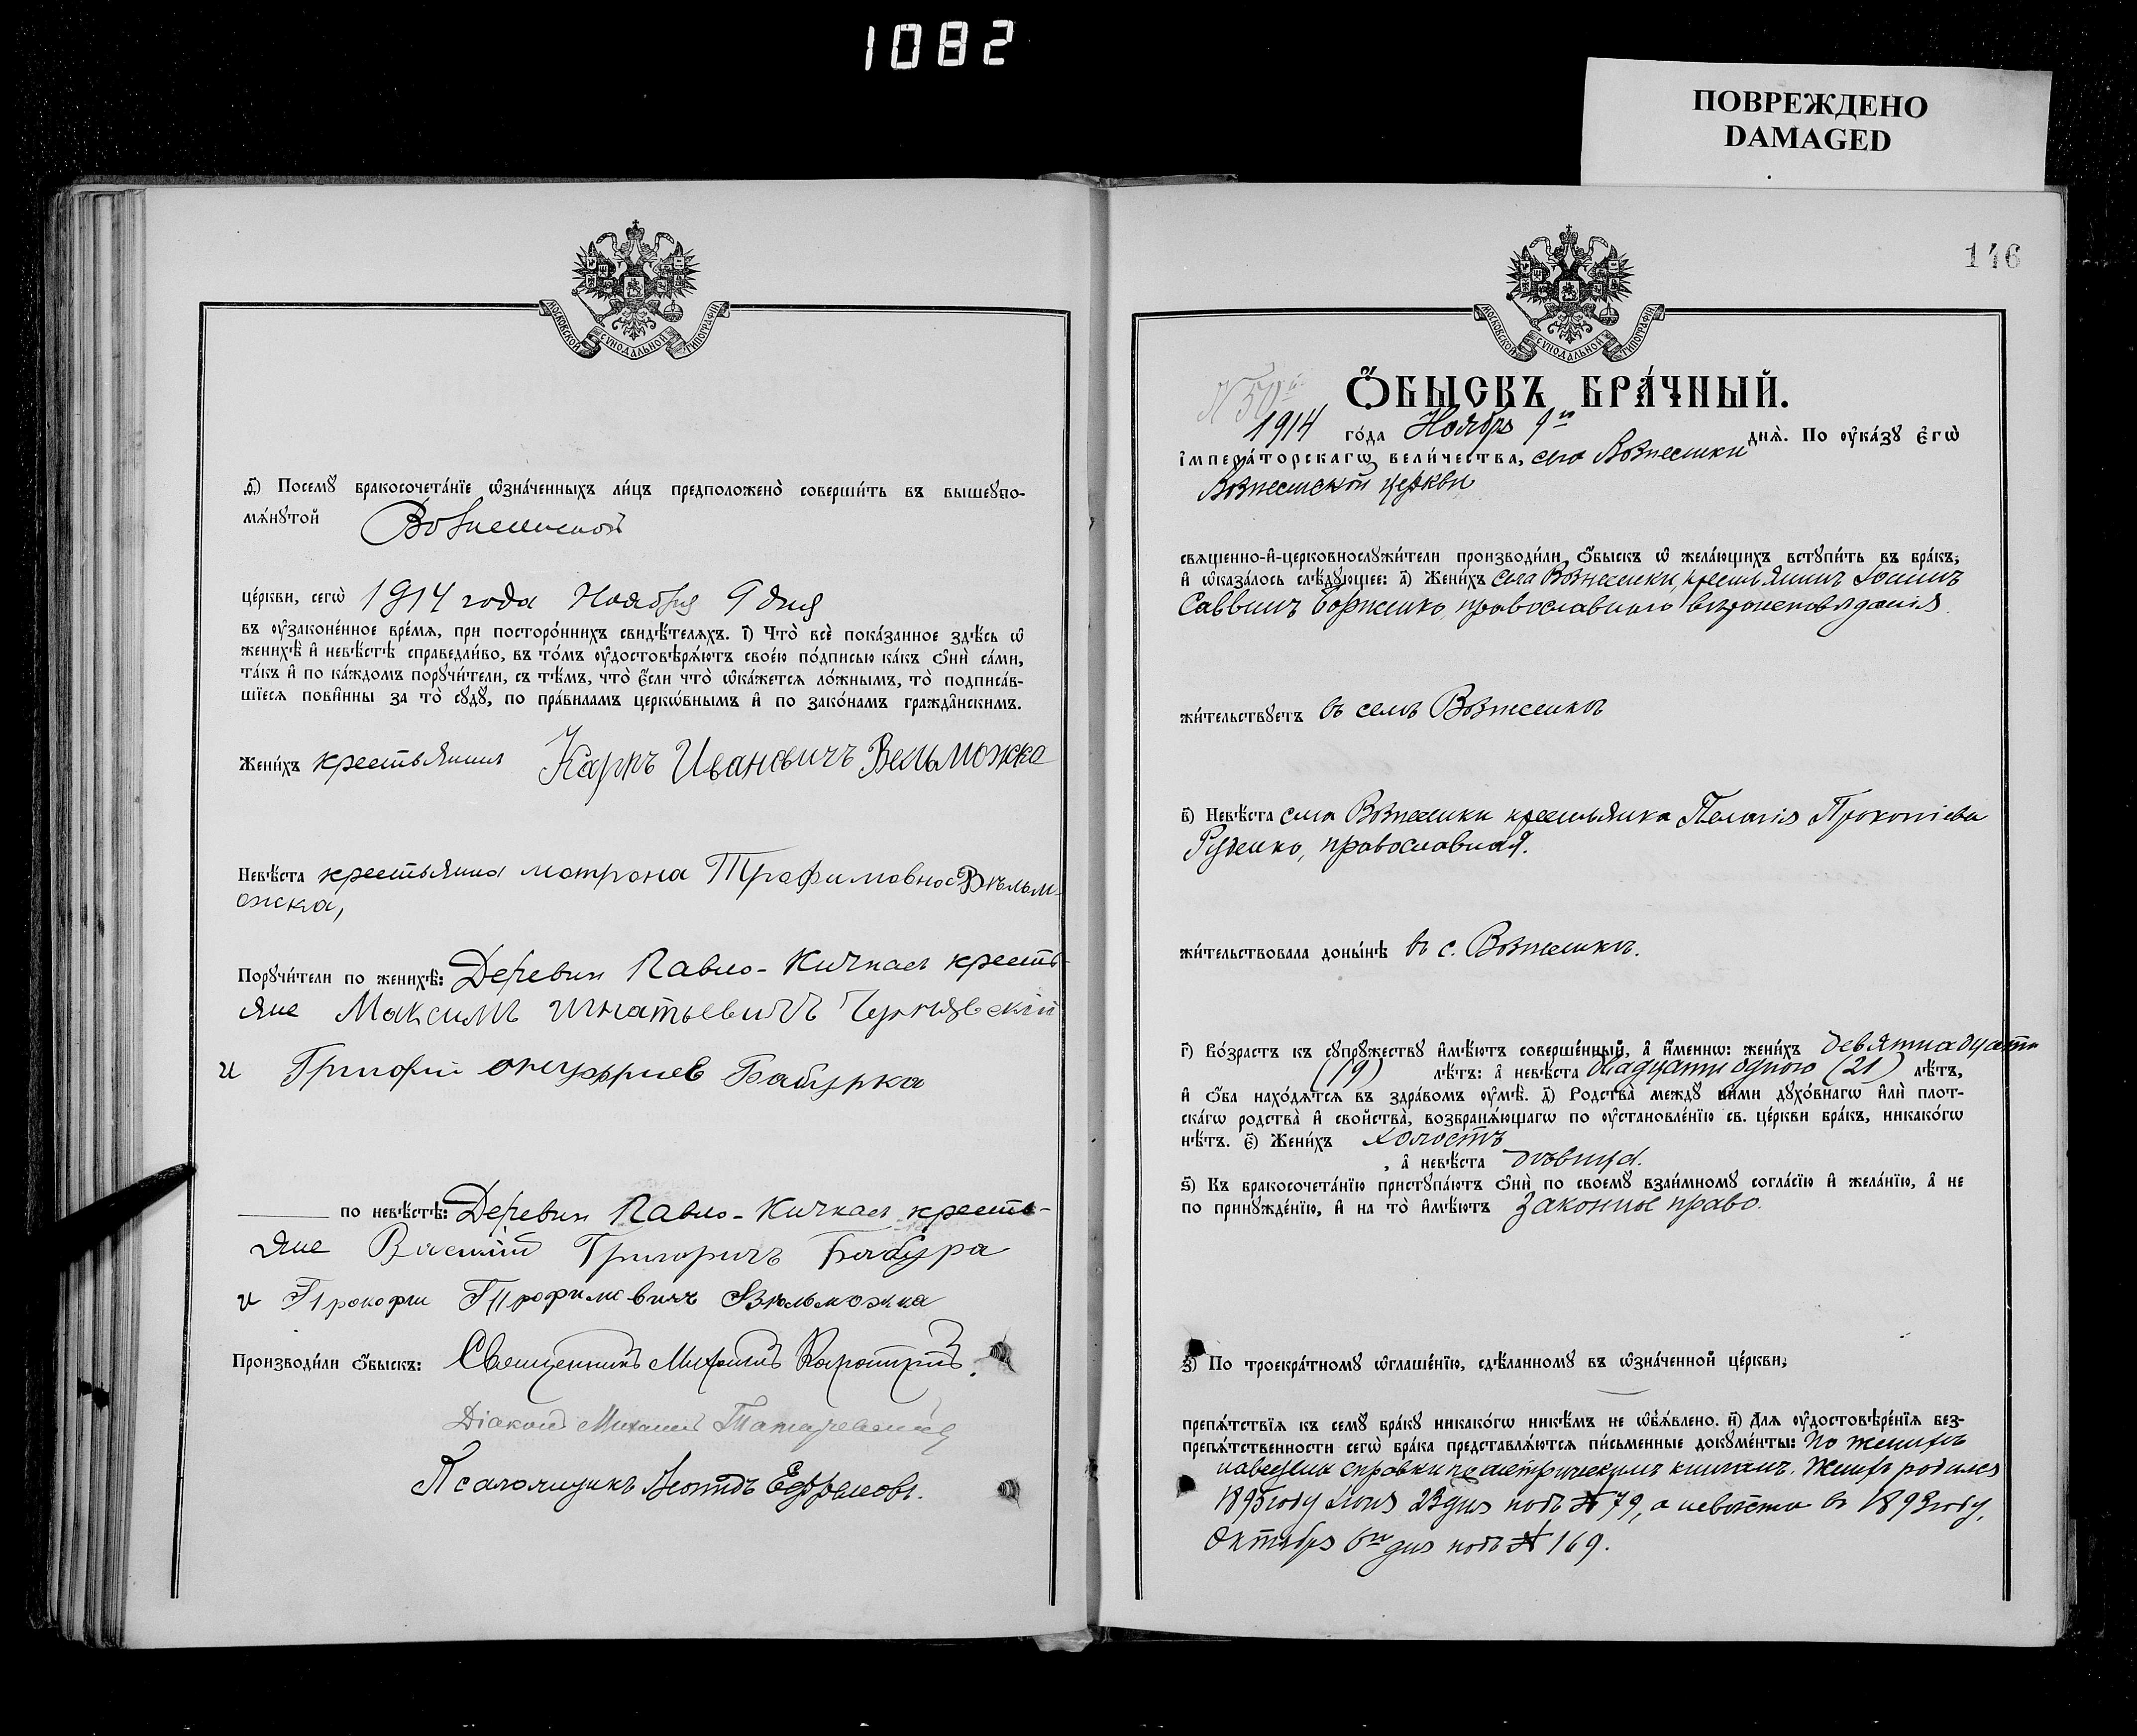 1082
ПОВРЕЖДЕНО
DAMAGED
МОСКОВСКОЙ СѴНОДАЛЬНОЙ ТИПОГРАФІИ
ѳ҃) Посемꙋ бракосочета́нїе ѡ҆зна́ченныхъ ли́цъ предположено̀ соверши́ть въ вышеꙋпо-
мѧ́нꙋтой Вознесенской
це́ркви, сегѡ̀ 1914 года Ноября 9 дня
въ ᲂу҆законе́нное вре́мѧ, при посторо́ннихъ свидѣ́телѧхъ. і҃) Что̀ всѐ пока́занное здѣ́сь ѡ҆
женихѣ̀ и҆ невѣ́стѣ справедли́во, въ то́мъ ᲂу҆достовѣрѧ́ютъ свое́ю по́дписью ка́къ ѻ҆нѝ са́ми,
та́къ и҆ по ка́ждомъ порꙋчи́тели, съ тѣ́мъ, что̀ є҆́сли что̀ ѡ҆ка́жетсѧ ло́жнымъ, то̀ подписа́в-
шїесѧ пови́нны за то̀ сꙋдꙋ̀, по пра́виламъ церкѡ́внымъ и҆ по зако́намъ гражда̑нскимъ.
Жени́хъ крестьянин Карпъ Ивановичъ Вельможка
Невѣ́ста крестьянка матрона Трофимовна Вельм-
ожка,
Порꙋчи́тели по женихѣ̀: Деревни Павло-Кичкас кресть-
яне Максимъ Игнатьевичъ Чернявский
и Григорий онуфриев Бабурка
по невѣ́стѣ: Деревни Павло-Кичкас кресть-
яне Василий Григоричъ Бабура
и Прокофи Трофимовичъ Вельможка
Производи́ли ѻ҆́быскъ: Священникъ Михаилъ
Діаконъ Михаилъ
Псаломщикъ Леонидъ Ефремовъ.
146
МОСКОВСКОЙ СѴНОДАЛЬНОЙ ТИПОГРАФІИ
N 50й
Ѻ҆́БЫСКЪ БРА́ЧНЫЙ.
1914 го́да Ноября 9го днѧ̀. По ᲂу҆ка́зꙋ є҆гѡ̀
і҆мпера́торскагѡ вели́чества, села Вознесенки
Вознесенской церкви
свѧщенно-и҆-церковнослꙋжи́тели производи́ли ѻ҆́быскъ ѡ҆ жела́ющихъ встꙋпи́ть въ бра́къ;
и҆ ѡ҆каза́лось слѣ́дꙋющее: а҃) Жени́хъ села Вознесенки, крестьянинъ Іоаннъ
Саввинъ Борженко, православнаго вѣроисповѣданія.
жи́тельствꙋетъ въ селѣ Вознесенкѣ
в҃) Невѣ́ста села Вознесенки крестьянка Пелагія Прокопіева
Руденко, православная.
жи́тельствовала донынѣ̀ въ с. Вознесенкѣ.
г҃) Во́зрастъ къ сꙋпрꙋ́жествꙋ и҆мѣ́ютъ соверше́нный, а҆ и҆́меннѡ: жени́хъ девятнадцати
(19) лѣ́тъ: а҆ невѣ́ста двадцати одного (21) лѣ́тъ,
и҆ ѻ҆́ба нахо́дѧтсѧ въ здра́вомъ ᲂу҆мѣ̀. д҃) Родства̀ междꙋ ни́ми дꙋхо́внагѡ и҆лѝ плот-
ска́гѡ родства̀ и҆ свойства̀, возбранѧ́ющагѡ по ᲂу҆становле́нїю св. це́ркви бра́къ, никако́гѡ
нѣ́тъ. є҃) Жени́хъ холостъ
, а҆ невѣ́ста дѣвица.
ѕ҃) Къ бракосочета́нїю пристꙋпа́ютъ ѻ҆нѝ по своемꙋ̀ взаи́мномꙋ согла́сїю и҆ жела́нїю, а҆ не
по принꙋжде́нїю, и҆ на то̀ и҆мѣ́ютъ законное право.
з҃) По троекра́тномꙋ ѡ҆глаше́нїю, сдѣ́ланномꙋ въ ѡ҆зна́ченной це́ркви;
препѧ́тствїѧ къ семꙋ̀ бра́кꙋ никако́гѡ никѣ́мъ не ѡ҆б̾ѧ́влено. и҃) Длѧ ᲂу҆достовѣре́нїѧ без-
препѧ́тственности сегѡ̀ бра́ка представлѧ́ютсѧ пи́сьменные докꙋме́нты: По женихѣ
наведены справки по метрическимъ книгамъ. Женихъ родился
1895 году Іюня 23 дня подъ № 79, а невѣста въ 1893 году,
Октября 6го дня подъ № 169.